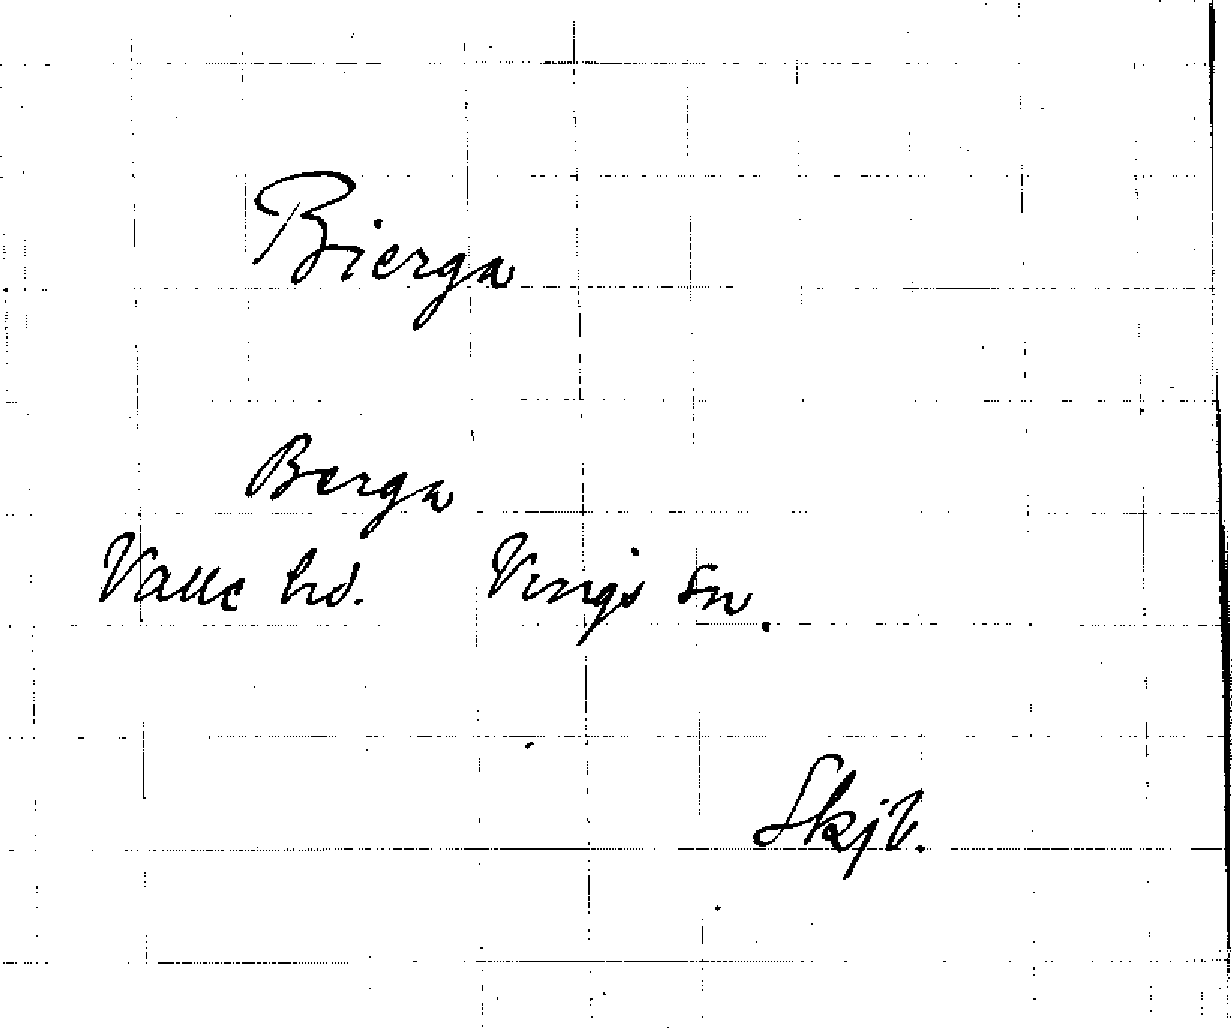 Bierga
Berga
Valle hd. Vings sn.
Skjb.